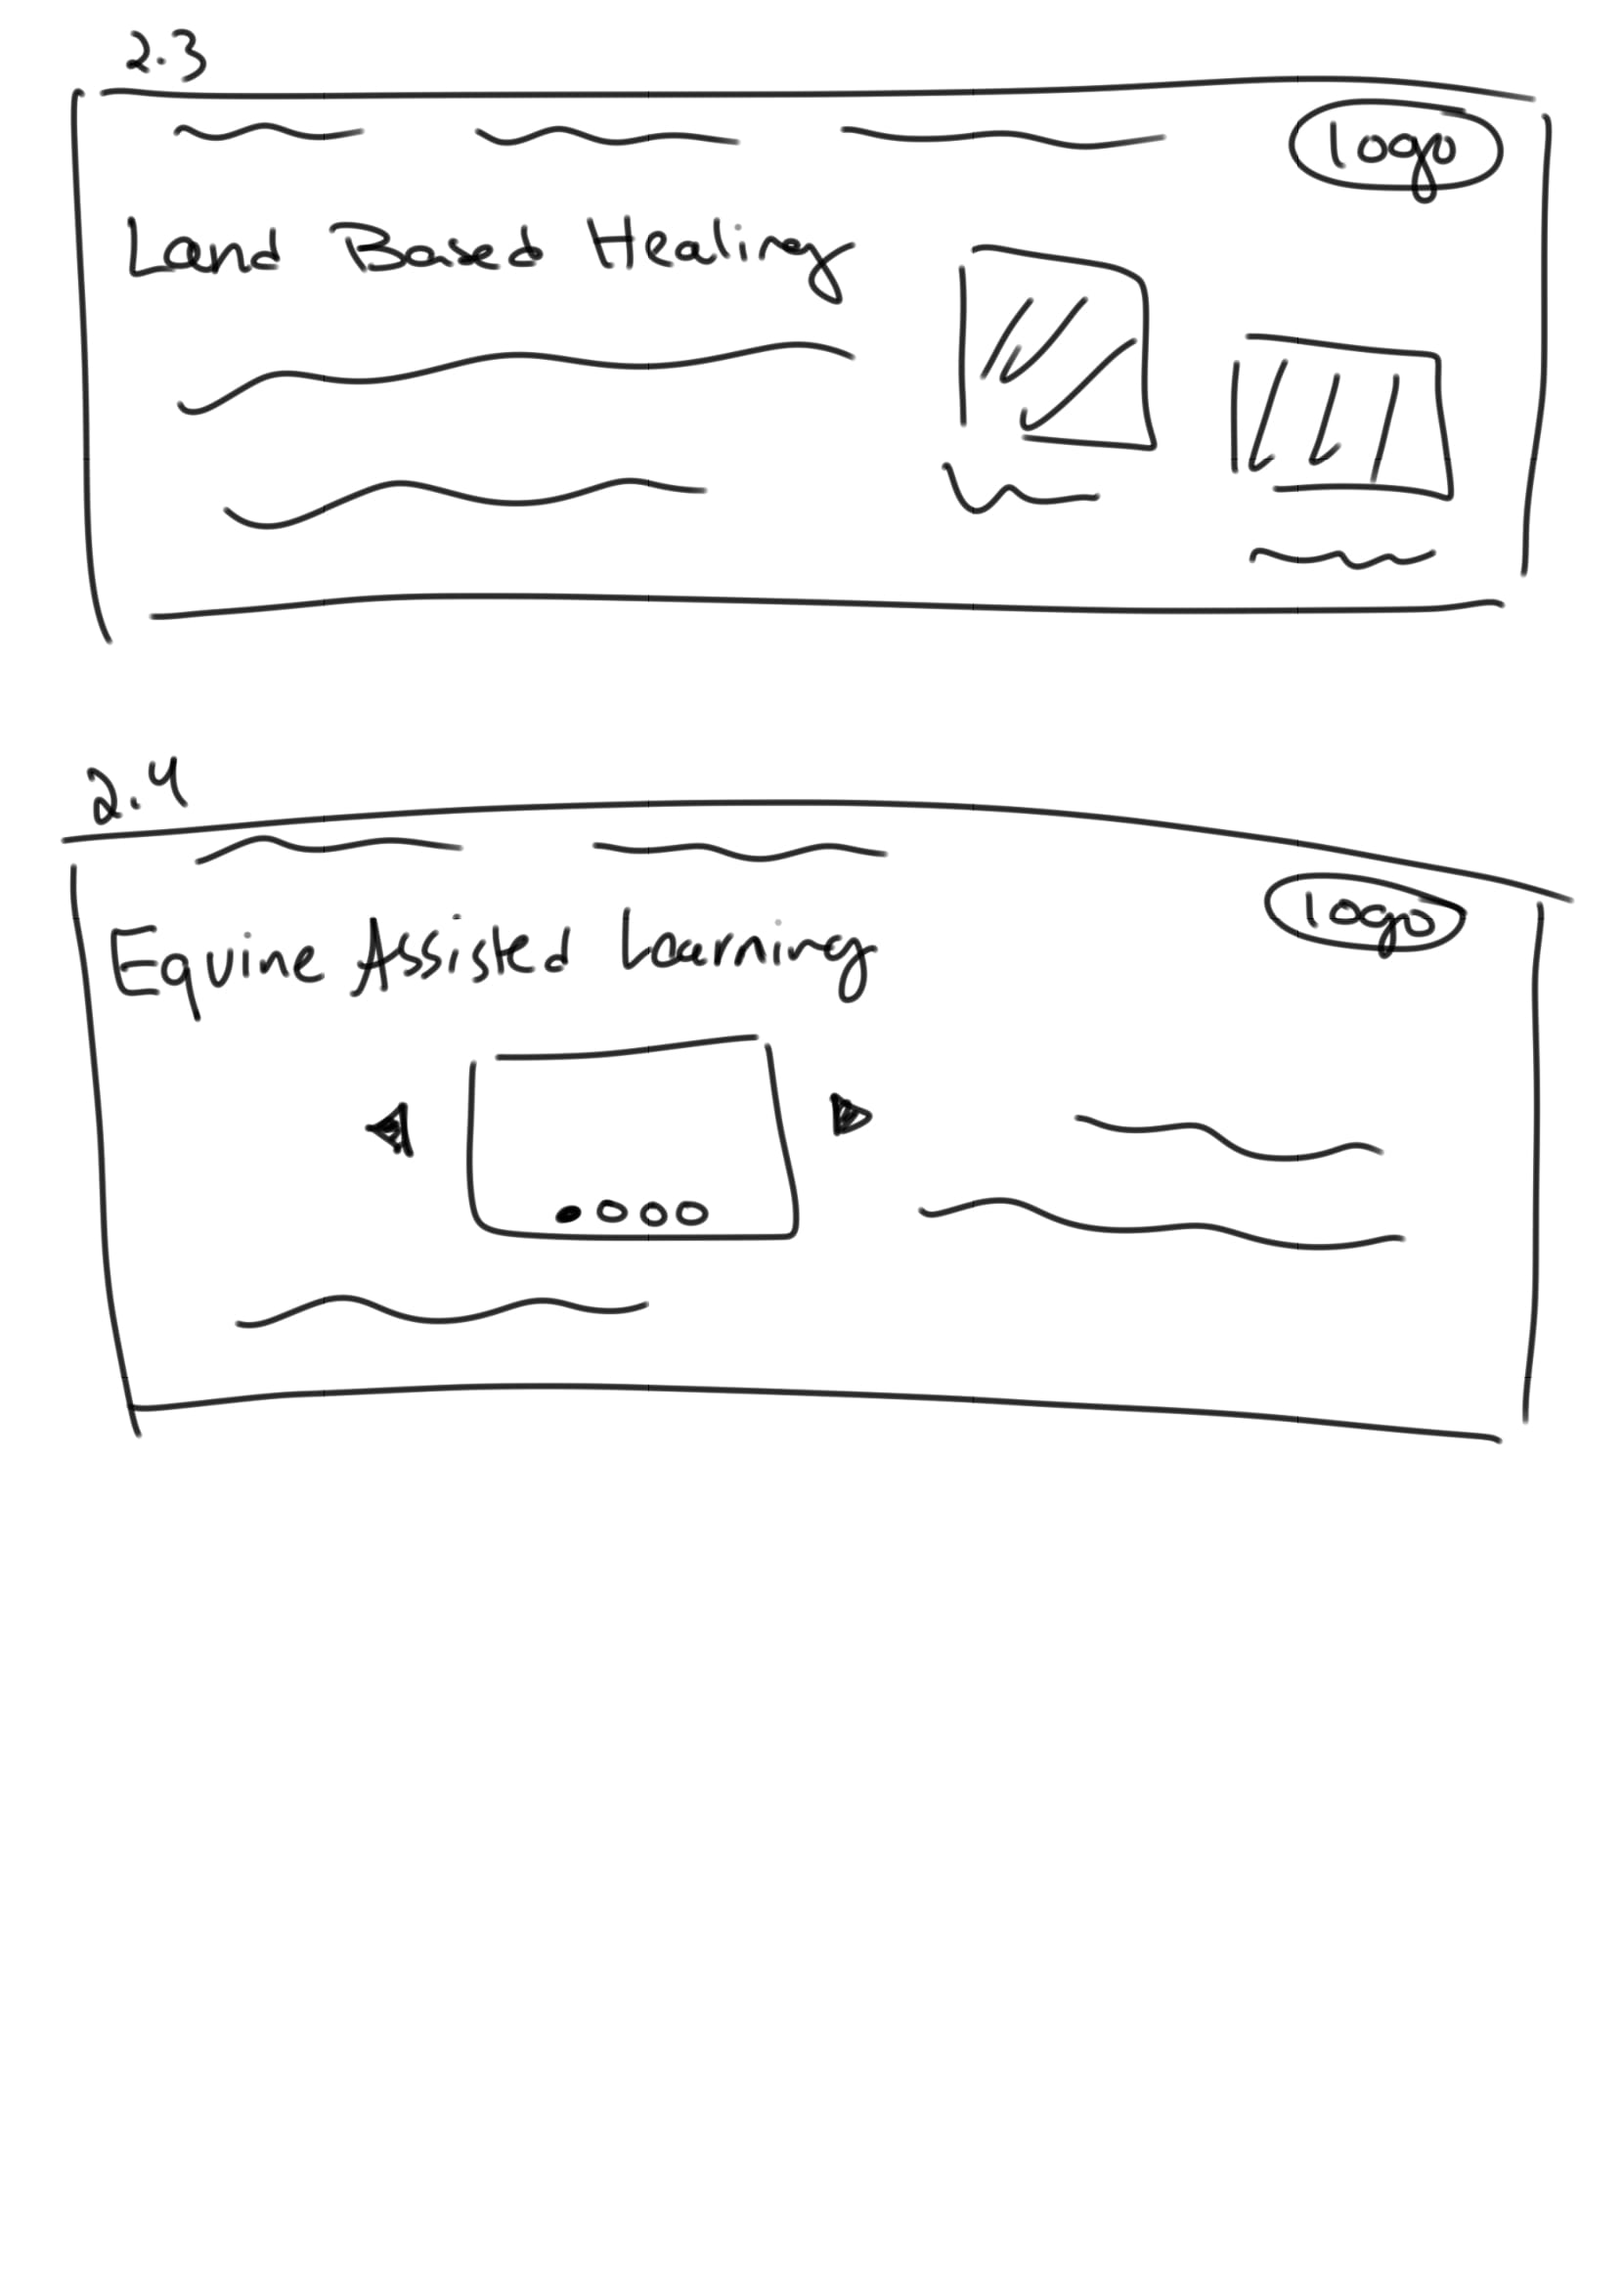 2.3
logo
Land Based Healing
2.4
logo
Equine Assisted Learning